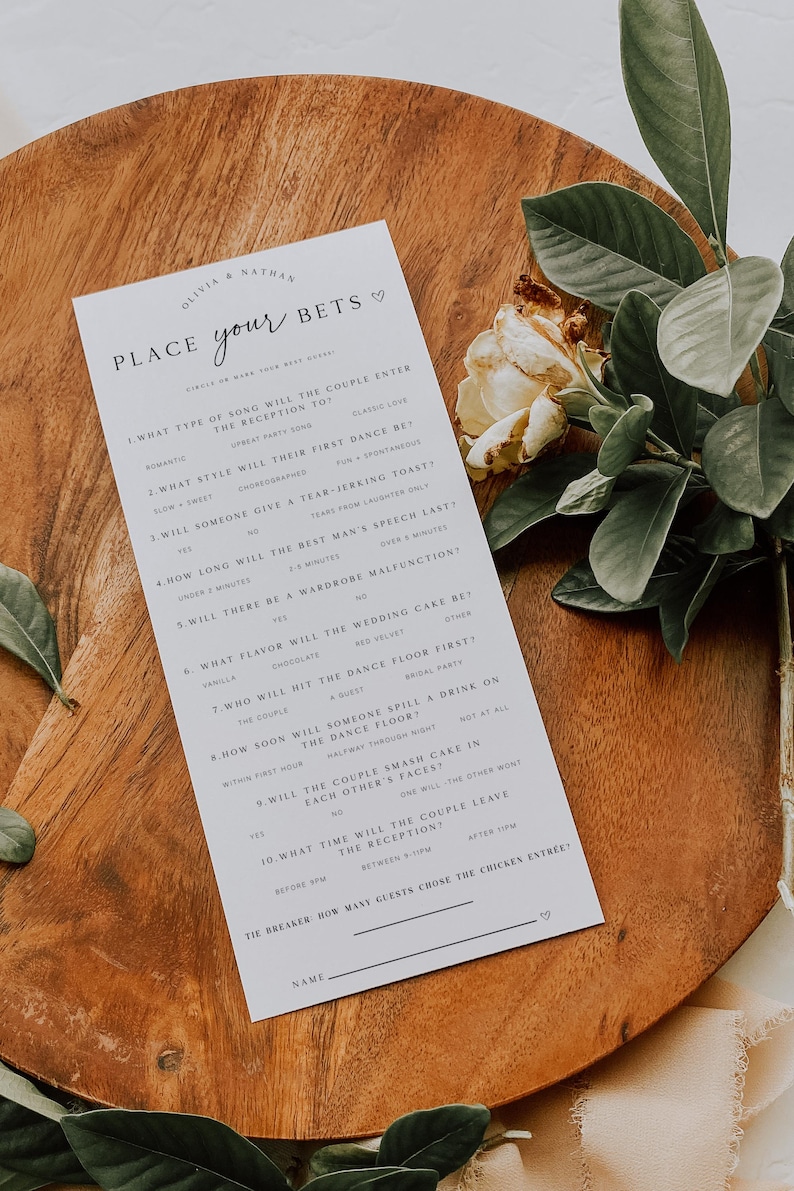 OLIVIA & NATHAN
PLACE your BETS
CIRCLE OR MARK YOUR BEST GUEST!
1.WHAT TYPE OF SONG WILL THE COUPLE ENTER
THE RECEPTION TO?
ROMANTIC UPBEAT PARTY SONG CLASSIC LOVE
2.WHAT STYLE WILL THEIR FIRST DANCE BE?
SLOW + SWEET CHOREOGRAPHED FUN + SPONTANEOUS
3.WILL SOMEONE GIVE A TEAR-JERKING TOAST?
YES NO TEARS FROM LAUGHTER ONLY
4.HOW LONG WILL THE BEST MAN'S SPEECH LAST?
UNDER 2 MINUTES 2-5 MINUTES OVER 5 MINUTES
5.WILL THERE BE A WARDROBE MALFUNCTION?
YES NO
6. WHAT FLAVOR WILL THE WEDDING CAKE BE?
VANILLA CHOCOLATE RED VELVET OTHER
7.WHO WILL HIT THE DANCE FLOOR FIRST?
THE COUPLE A GUEST BRIDAL PARTY
8.HOW SOON WILL SOMEONE SPILL A DRINK ON
THE DANCE FLOOR?
WITHIN FIRST HOUR HALFWAY THROUGH NIGHT NOT AT ALL
9.WILL THE COUPLE SMASH CAKE IN
EACH OTHER'S FACES?
YES NO ONE WILL -THE OTHER WONT
10.WHAT TIME WILL THE COUPLE LEAVE
THE RECEPTION?
BEFORE 9PM BETWEEN 9-11PM AFTER 11PM
TIE BREAKER: HOW MANY GUESTS CHOSE THE CHICKEN ENTRÉE?
NAME